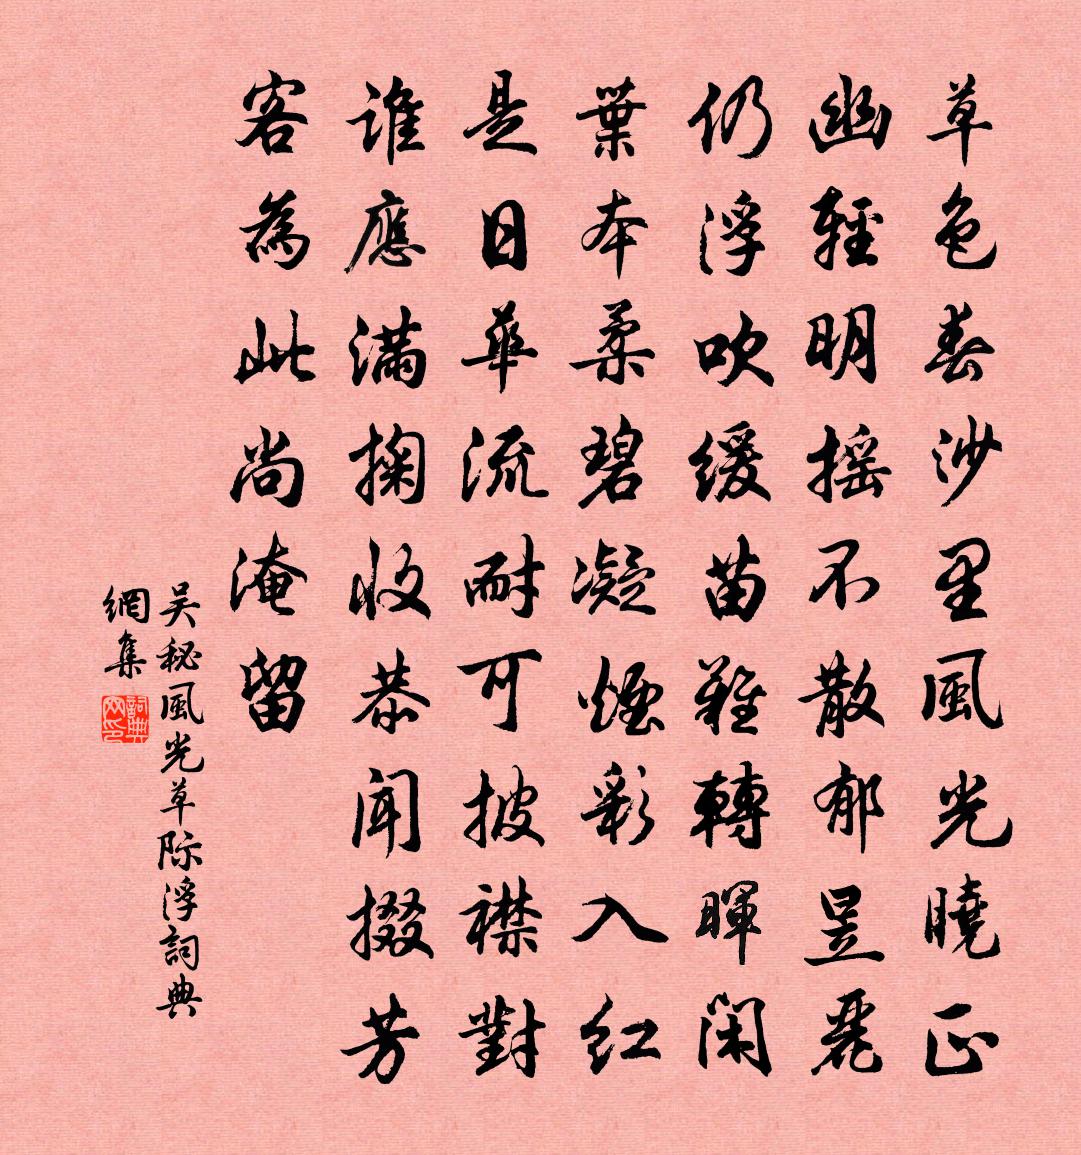 草色春沙里風光曉正
幽輕明摇不散郁昱麗
仍浮吹緩苗難轉暉閑
葉本柔碧凝煙彩入紅
是日華流耐可披襟對
誰應滿掬收恭聞掇芳
客為此尚淹留
吴秘風光草际浮詞典
網集
詞典網印